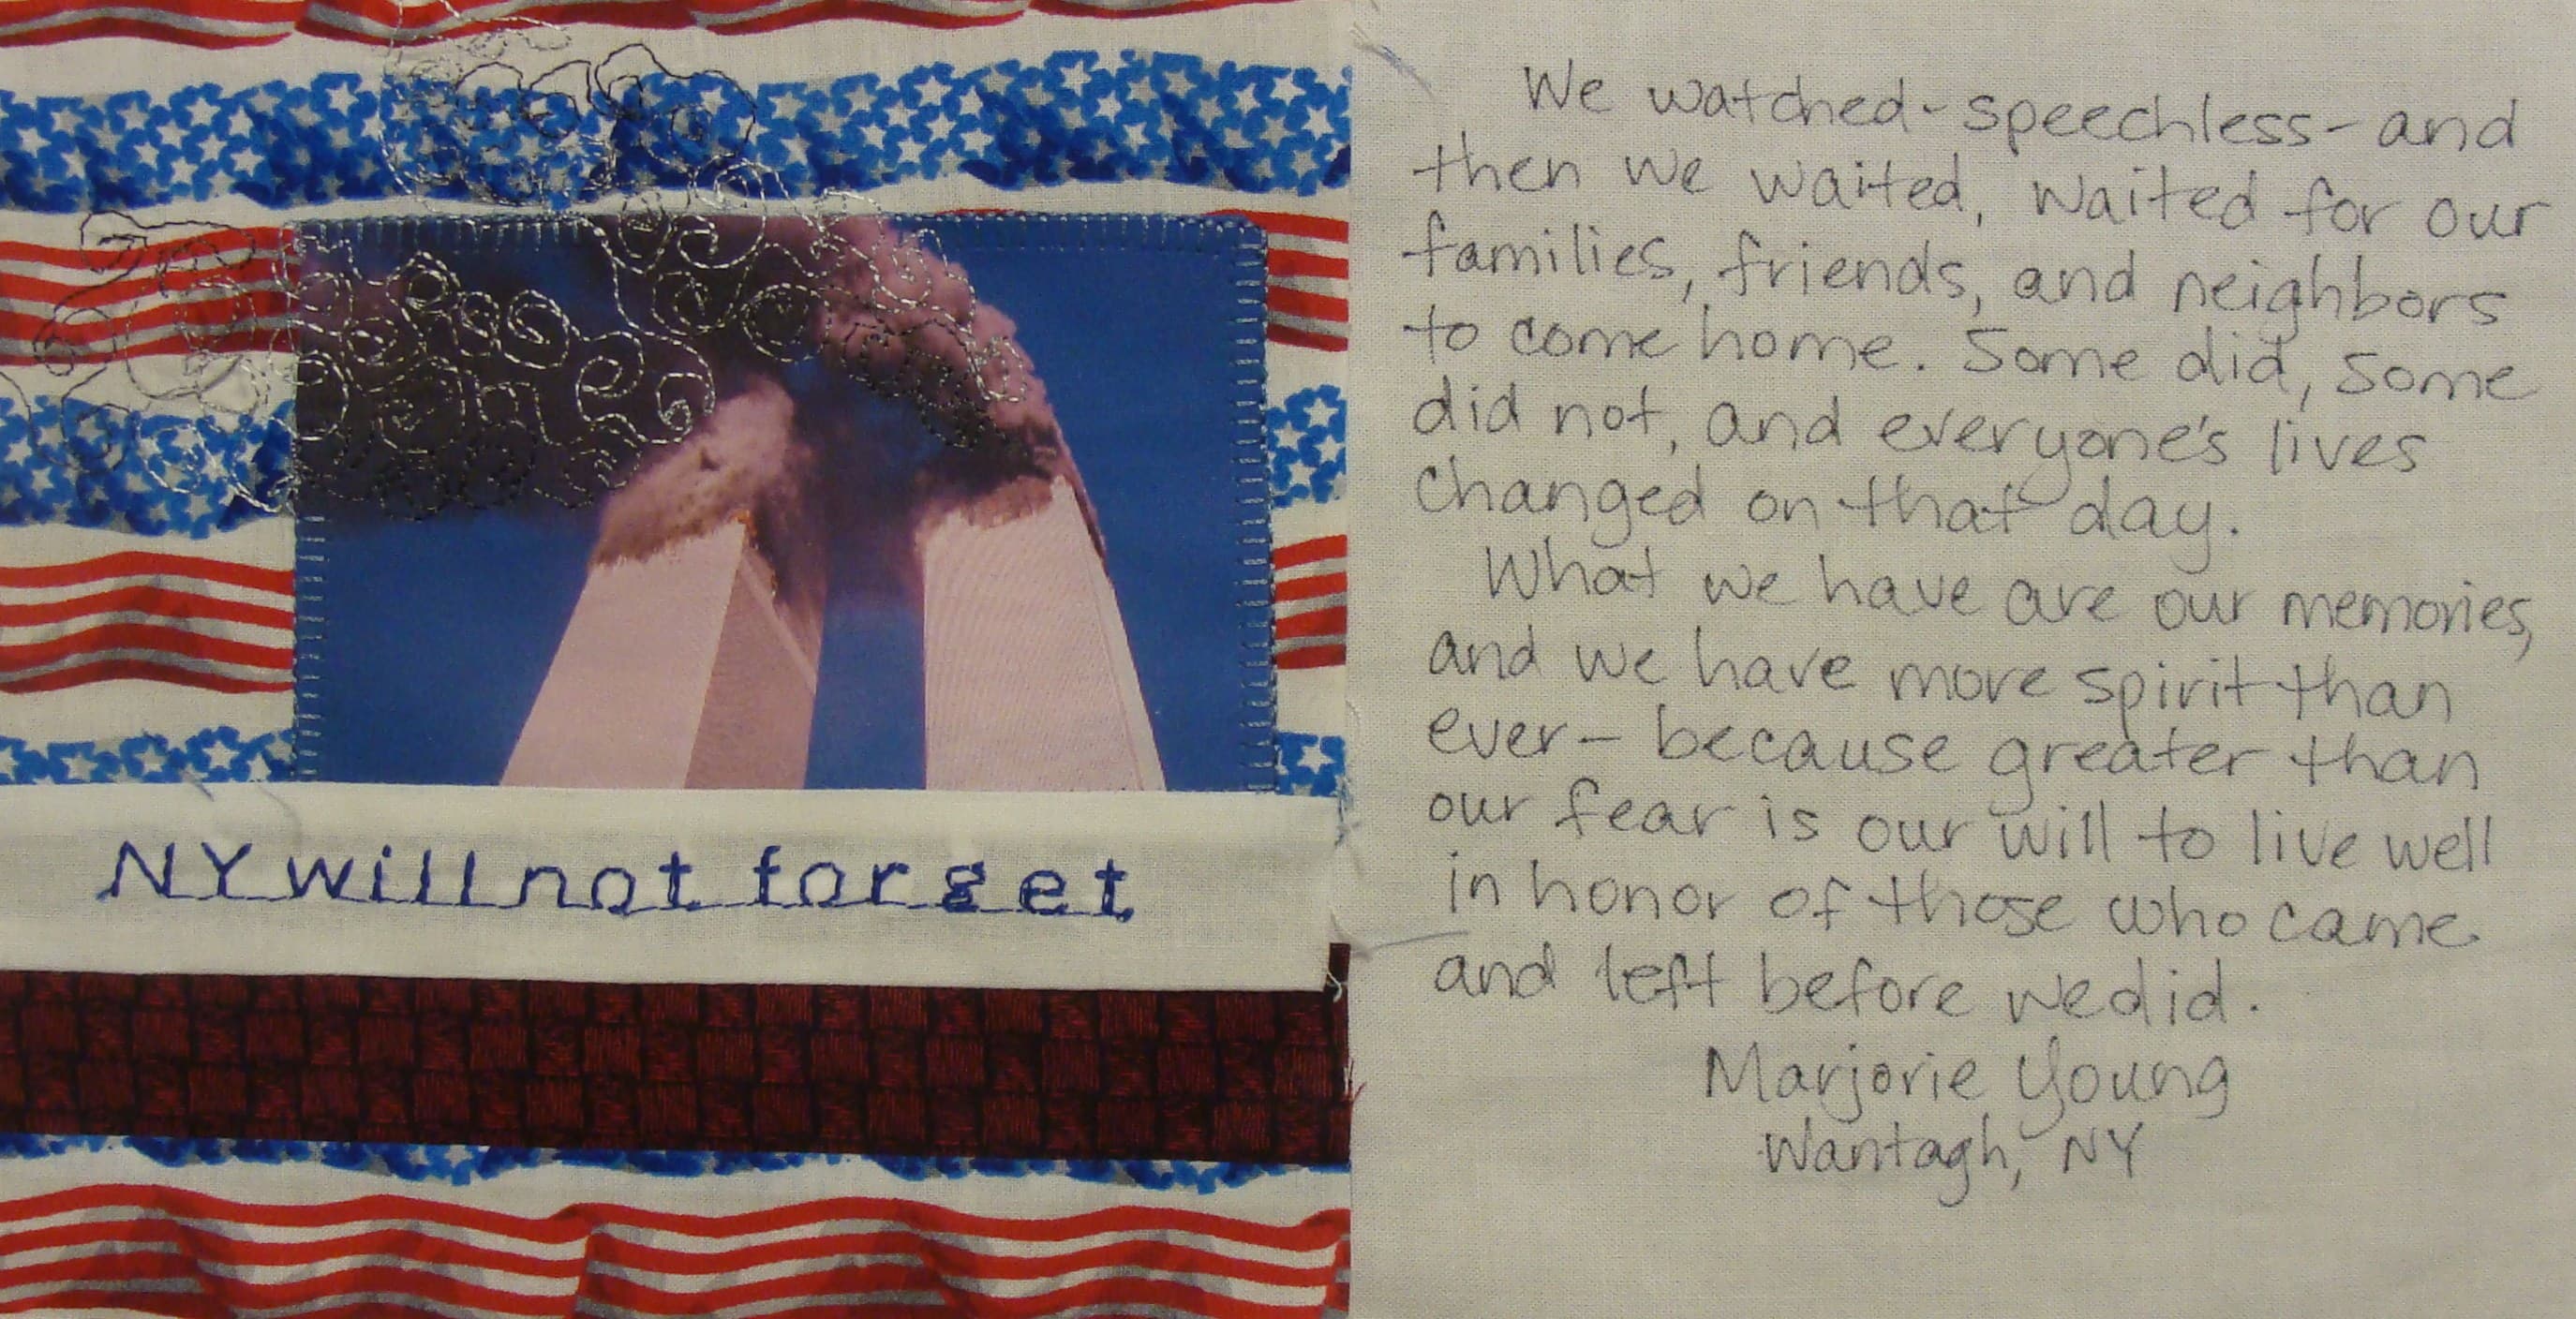 NY will not forget
We watched-speechless-and
then we waited, waited for our
families, friends, and neighbors
to come home. Some did, some
did not, and everyone's lives
changed on that day.
What we have are our memories,
and we have more spirit than
ever- because greater than
our fear is our will to live well
in honor of those who came
and left before we did.
Marjorie Young
Wantagh, NY